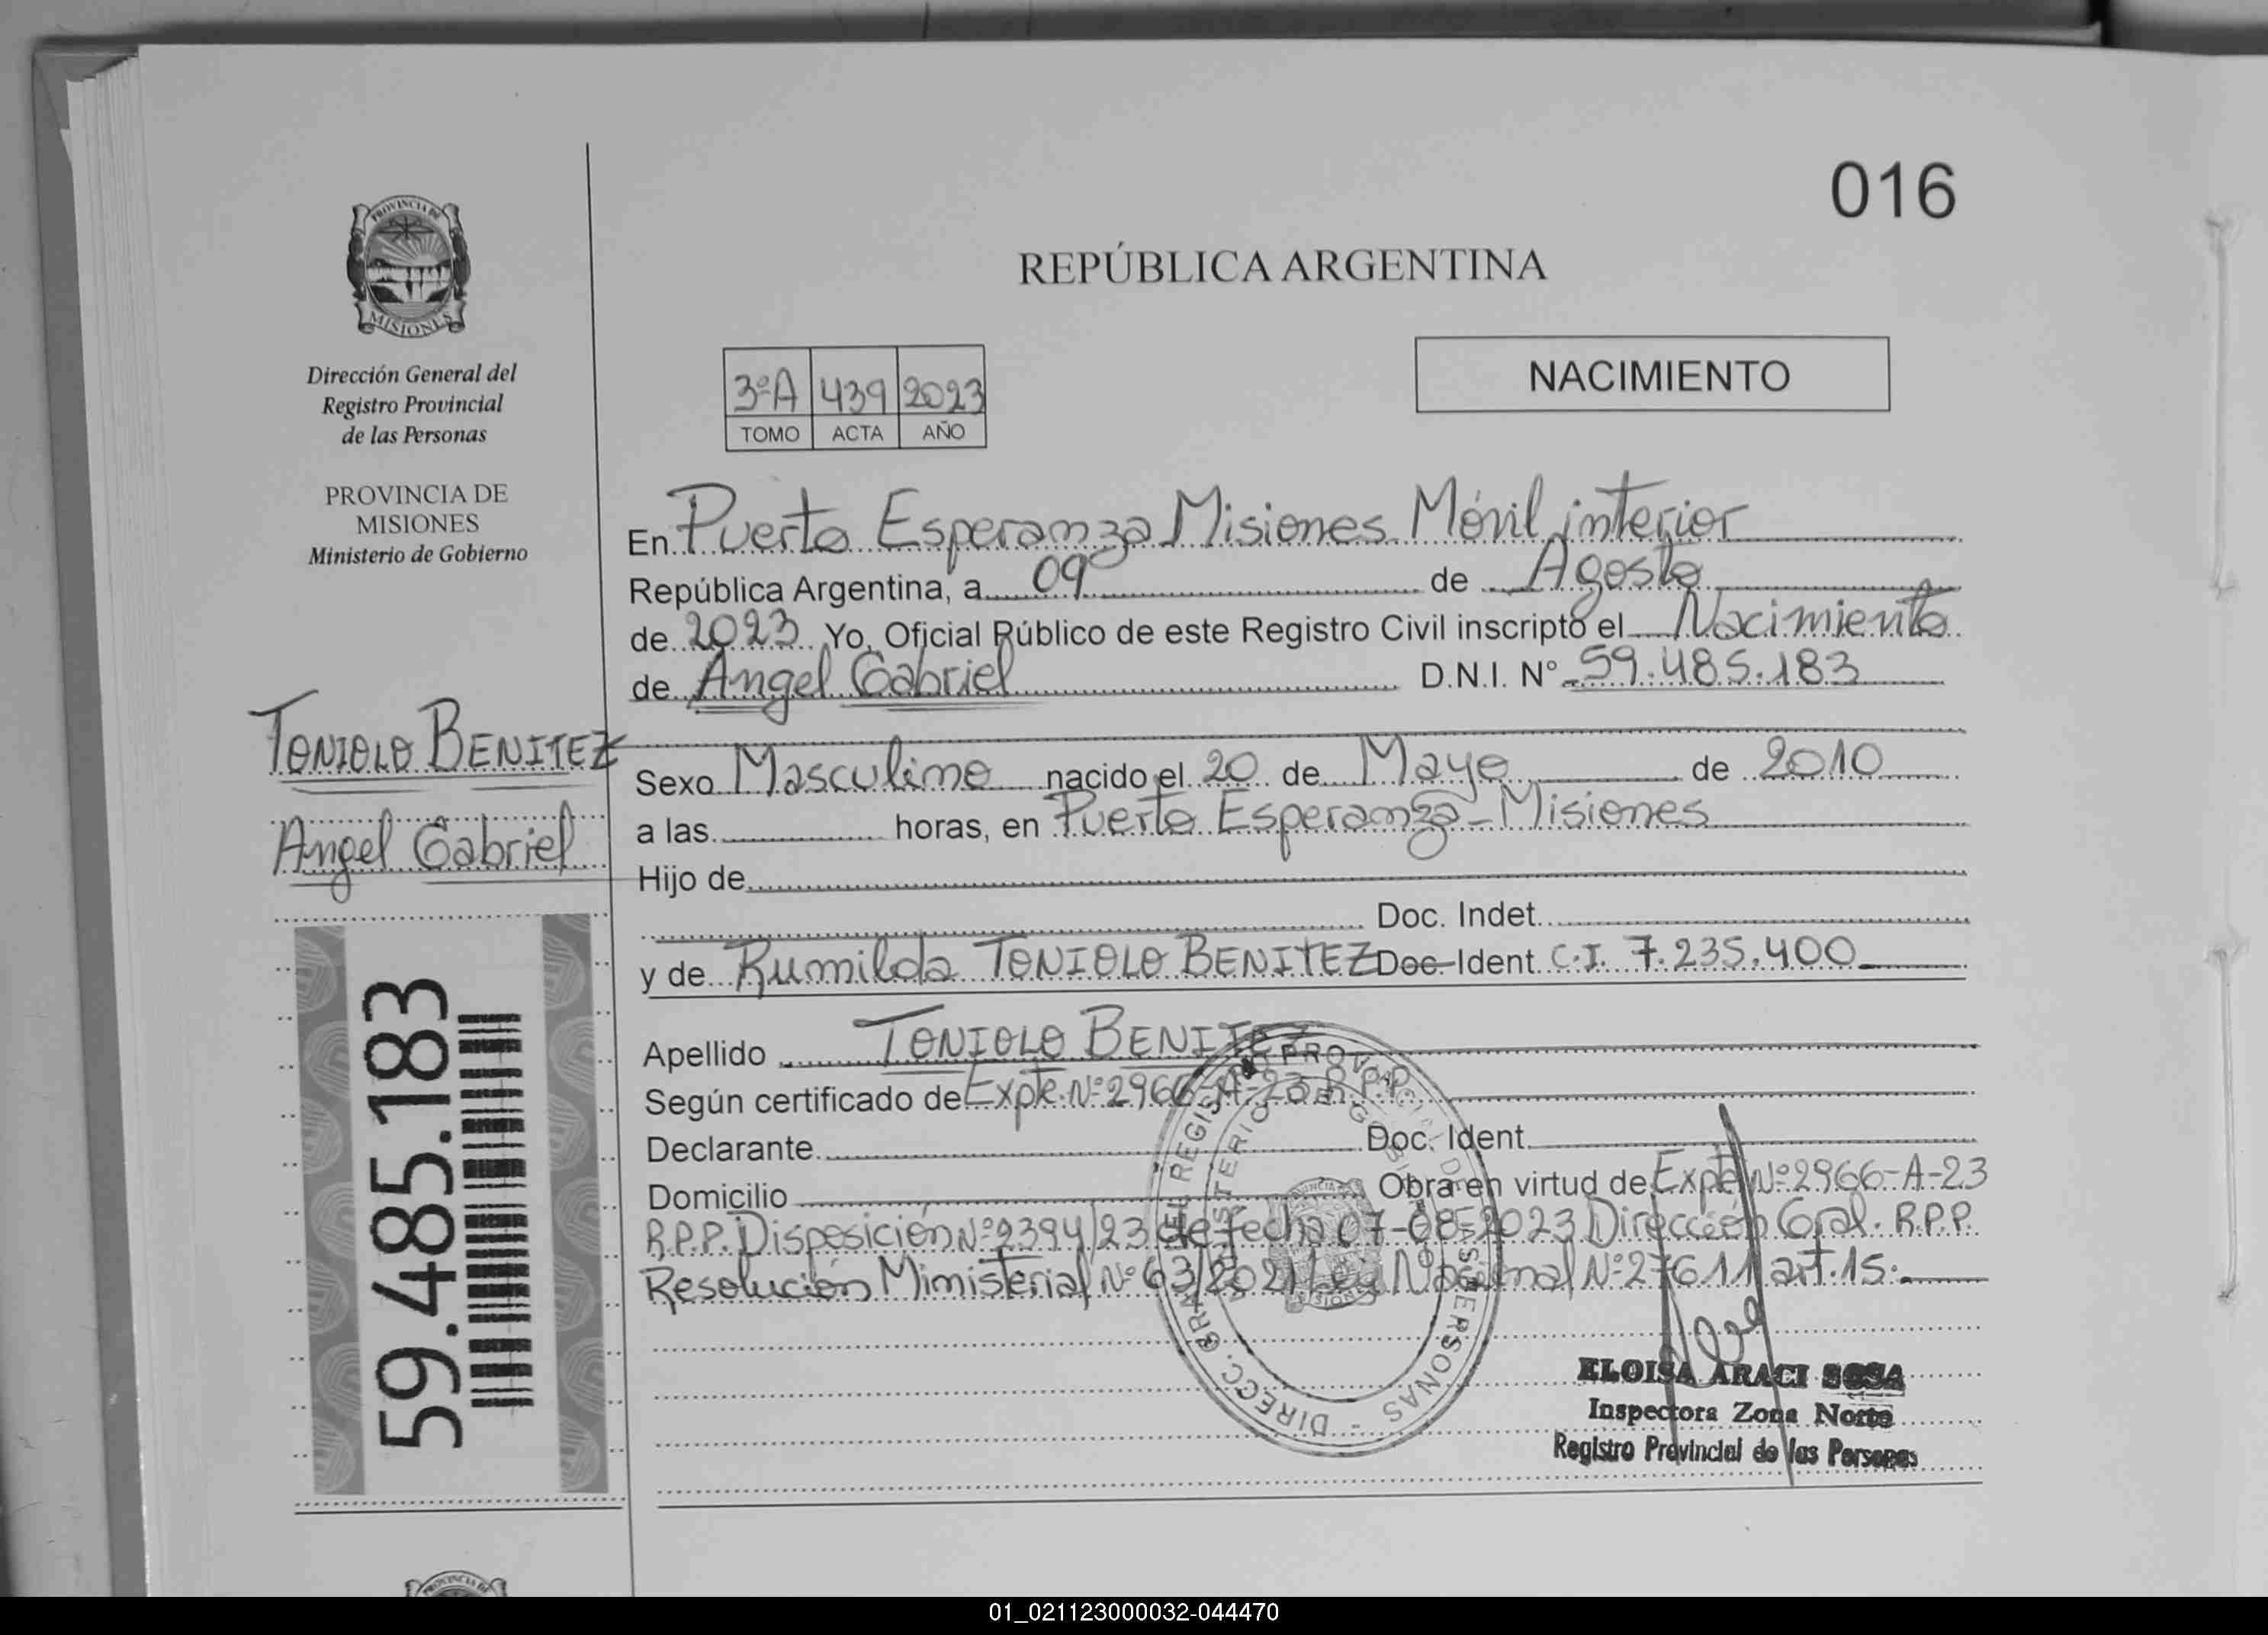 016
PROVINCIA DE
MISIONES
Dirección General del
Registro Provincial
de las Personas
PROVINCIA DE
MISIONES
Ministerio de Gobierno
TONIOLO BENITEZ
Angel Gabriel
59.485.183
REPÚBLICA ARGENTINA
NACIMIENTO
3ºA 439 2023
TOMO ACTA AÑO
En Puerto Esperanza Misiones Móvil interior
República Argentina, a 09 de Agosto
de 2023 Yo, Oficial Público de este Registro Civil inscripto el Nacimiento
de Angel Gabriel D.N.I. Nº 59.485.183
Sexo Masculino nacido el 20 de Mayo de 2010
a las horas, en Puerto Esperanza - Misiones
Hijo de
Doc. Indet.
y de Rumilda TONIOLO BENITEZ Doc. Ident. C.I. 7.235.400
Apellido TONIOLO BENITEZ
Según certificado de Expte. Nº 2966-A-23 R.P.P.
Declarante Doc. Ident.
Domicilio Obra en virtud de Expte Nº 2966-A-23
R.P.P. Disposición Nº 2394/23 de fecha 07-08-2023 Dirección Gral. R.P.P.
Resolución Ministerial Nº 63/2021 Ley Nacional Nº 27611 art. 15.
ELOISA ARACI SOSA
Inspectora Zona Norte
Registro Provincial de las Personas
01_021123000032-044470